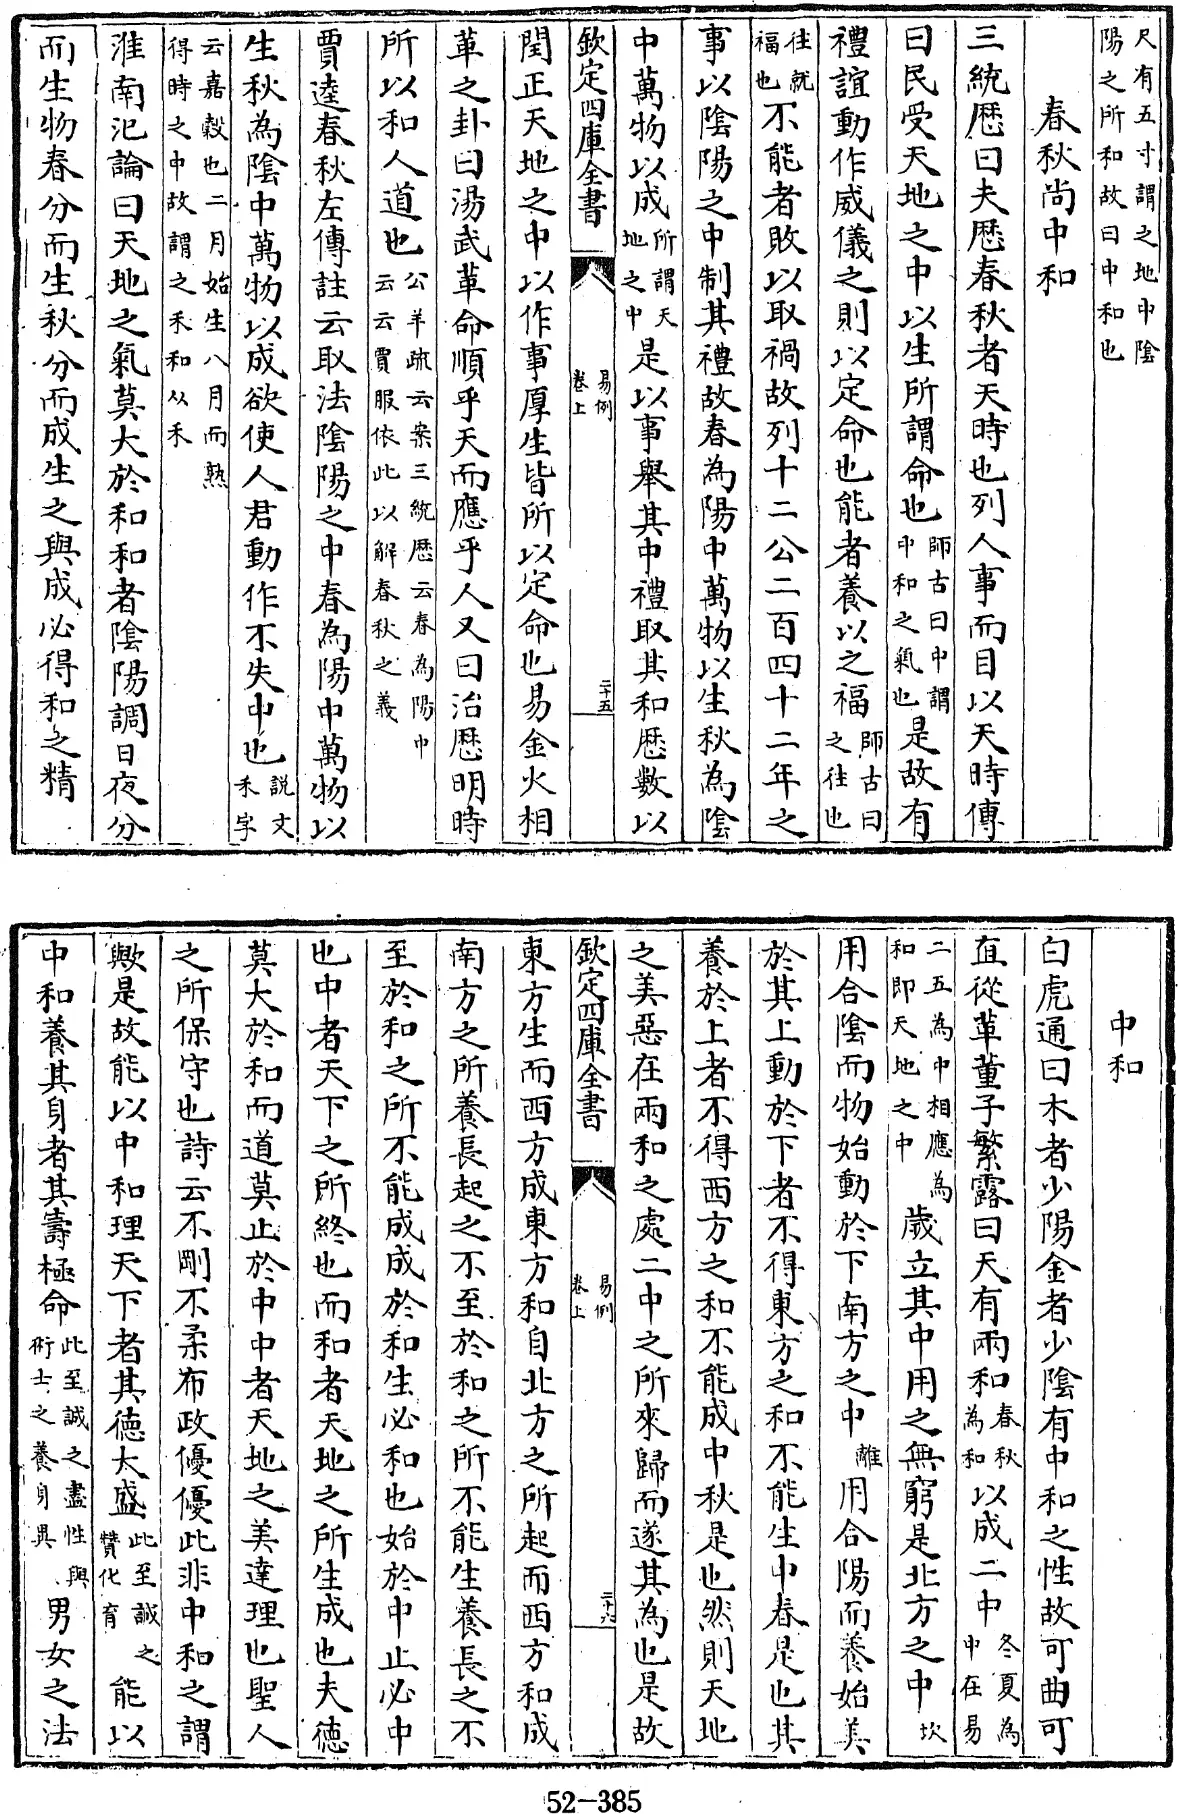 尺有五寸謂之地中陰
陽之所和故曰中和也
春秋尚中和
三統歴曰夫歴春秋者天時也列人事而目以天時傳
曰民受天地之中以生所謂命也師古曰中謂中和之氣也是故有
禮誼動作威儀之則以定命也能者養以之福師古曰之徃也
徃就福也不能者敗以取禍故列十二公二百四十二年之
事以陰陽之中制其禮故春為陽中萬物以生秋為陰
中萬物以成所謂天地之中是以事舉其中禮取其和歴數以
欽定四庫全書
易例
卷上
二十五
閏正天地之中以作事厚生皆所以定命也易金火相
革之卦曰湯武革命順乎天而應乎人又曰治歴明時
所以和人道也公羊疏云案三統歴云春為陽中云云賈服依此以解春秋之義
賈逵春秋左傳註云取法陰陽之中春為陽中萬物以
生秋為陰中萬物以成欲使人君動作不失中也説文禾字
云嘉穀也二月始生八月而熟得時之中故謂之禾和从禾
淮南氾論曰天地之氣莫大於和和者陰陽調日夜分
而生物春分而生秋分而成生之與成必得和之精
中和
白虎通曰木者少陽金者少陰有中和之性故可曲可
直從革董子繁露曰天有兩和春秋為和以成二中冬夏為中在易
二五為中相應為和即天地之中歲立其中用之無窮是北方之中坎
用合陰而物始動於下南方之中離用合陽而養始美
於其上動於下者不得東方之和不能生中春是也其
養於上者不得西方之和不能成中秋是也然則天地
之美惡在兩和之處二中之所來歸而遂其為也是故
欽定四庫全書
易例
卷上
二十六
東方生而西方成東方和自北方之所起而西方和成
南方之所養長起之不至於和之所不能生養長之不
至於和之所不能成成於和生必和也始於中止必中
也中者天下之所終也而和者天地之所生成也夫徳
莫大於和而道莫止於中中者天地之美達理也聖人
之所保守也詩云不剛不柔布政優優此非中和之謂
歟是故能以中和理天下者其徳大盛此至誠之贊化育能以
中和養其身者其壽極命此至誠之盡性與術士之養身異男女之法
52-385